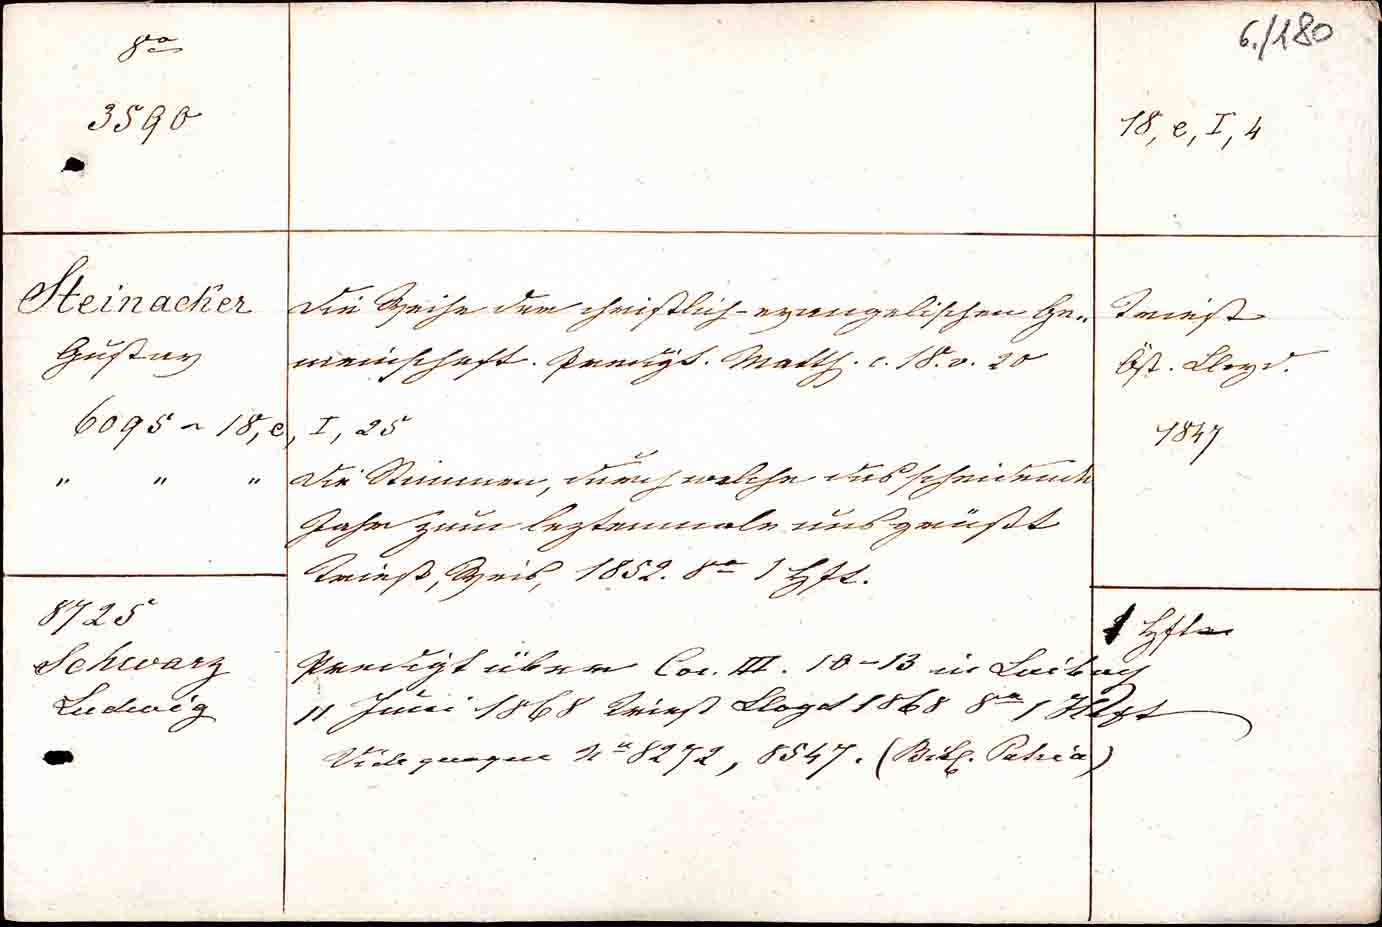 6./180
8º
3590
18, e, I, 4
Steinacker
Gustav
Die Weihe der christlich-evangelischen Ge„
meinschaft. Predigt. Matth. c. 18. v. 20
Triest
Öst. Lloyd.
1847
6095 ~ 18, e, I, 25
" " "
Die Stimmen, durch welche das scheidende
Jahr zum leztenmale uns grüßt
Triest, Weis, 1852. 8º 1 Hft.
1 Hft
8725
Schwarz
Ludwig
Predigt über Cor. III. 10-13 in Laibach
11 Juni 1868 Triest Lloyd 1868 8º 1 Heft
Vide quoque Nº 8272, 8547. (Bibl. Patria)